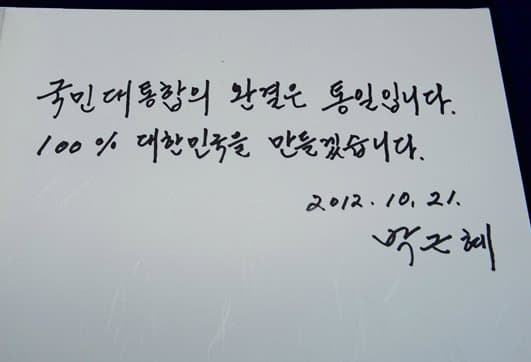 국민대통합의 완결은 통일입니다.
100% 대한민국을 만들겠습니다.
2012. 10. 21.
박근혜